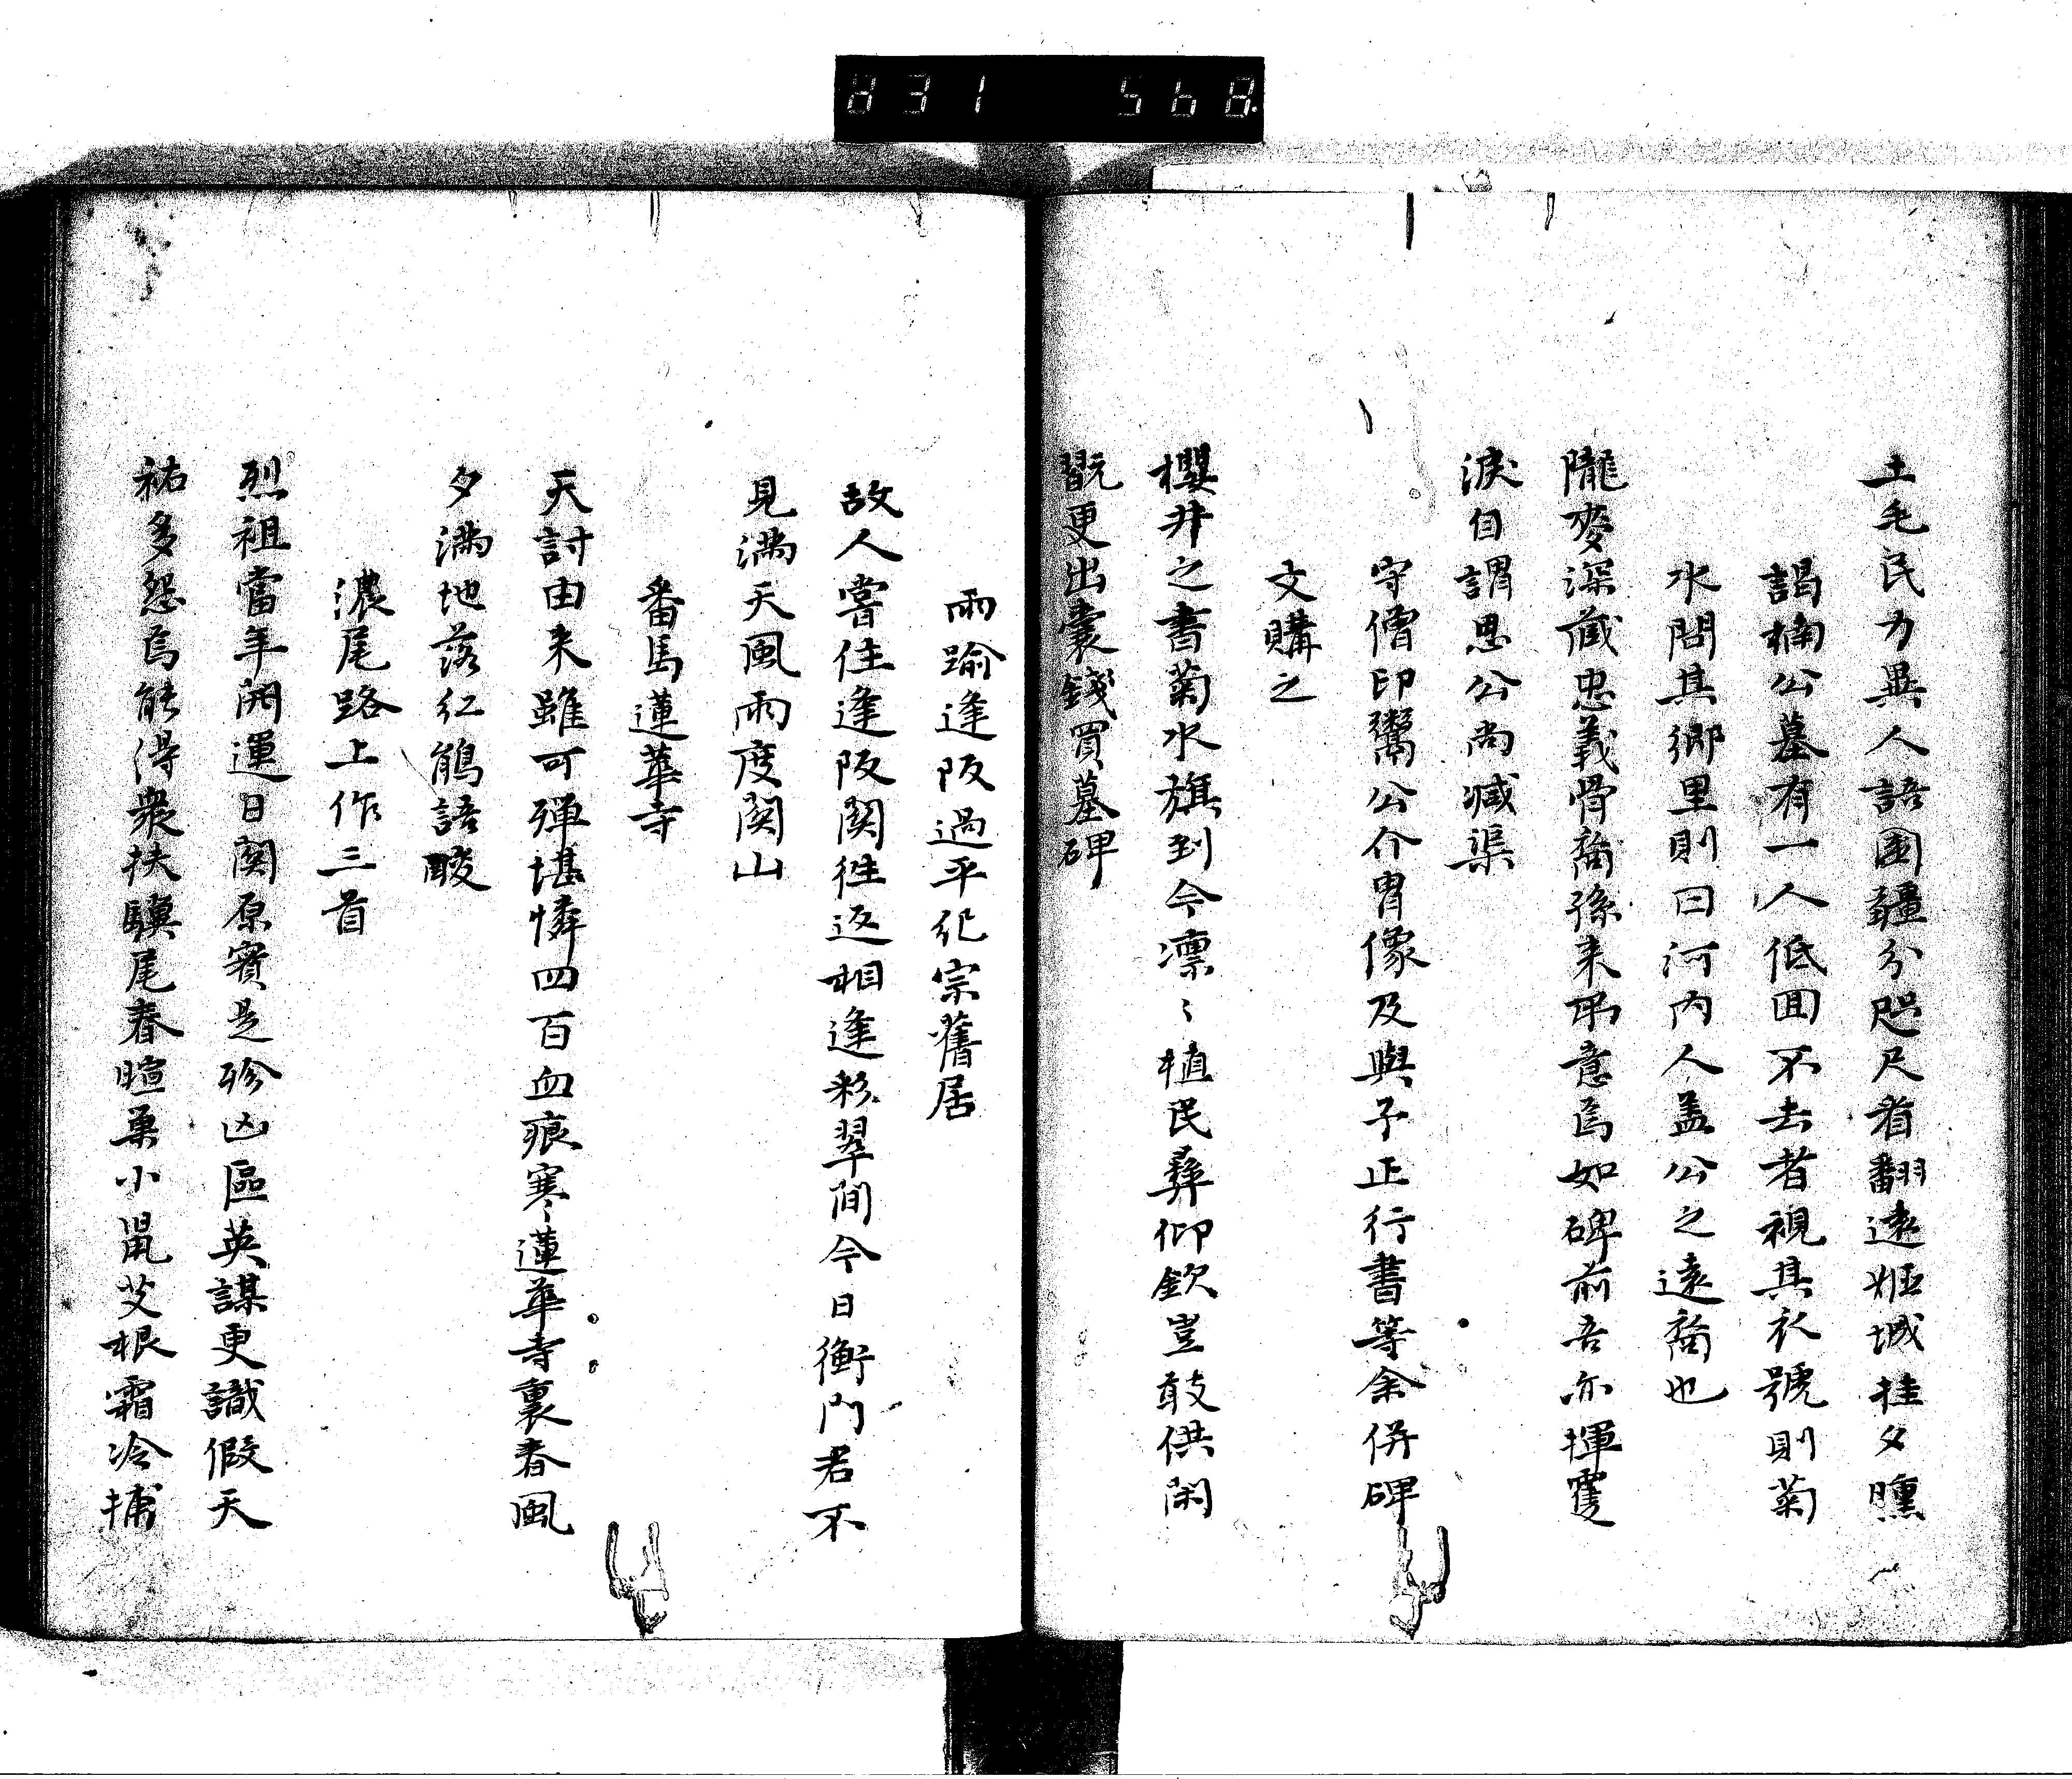 831 568
土毛民力異人語国疆分咫尺看翻遠姫城挂夕曛
謁楠公墓有一人低囬不去者視其衣號則菊
水問其郷里則曰河内人盖公之遠裔也
隴麥深蔵忠義骨裔孫来吊意焉如碑前吾亦揮霑
淚自謂思公尚減渠
守僧印鬻公介冑像及與子正行書等余併碑
文購之
櫻井之書菊水旗到今凛〻植民彝仰欽豈敢供閑
翫更出囊錢買墓碑
雨踰逢阪過平紀宗舊居
故人嘗住逢阪関徃返相逢彩翠間今日衡門君不
見満天風雨度関山
番馬蓮華寺
天討由来雖可殫堪憐四百血痕寒蓮華寺裏春風
夕満地落红鵑語酸
濃尾路上作三首
烈祖當年開運日関原實是殄凶區英謀更識假天
祐多怨焉能得衆扶驥尾春暄巣小鼠艾根霜冷捕